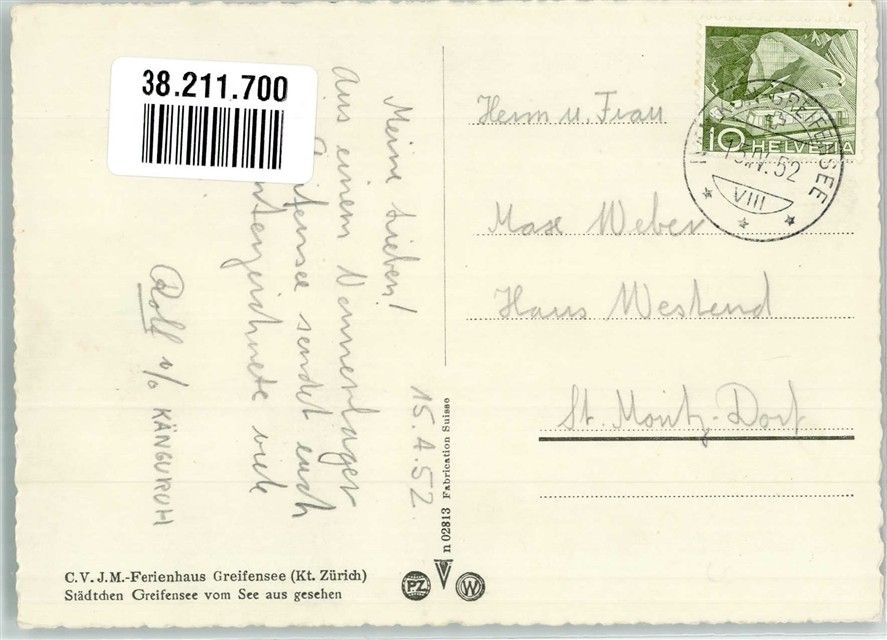 38.211.700
15.4.52
Meine Lieben!
Aus einem Nonnenlager
Greifensee sendet euch
unterzeichnete viele
Roll v/o KÄNGURUH
C.V.J.M.-Ferienhaus Greifensee (Kt. Zürich)
Städtchen Greifensee vom See aus gesehen
n 02813 Fabrication Suisse
PZ
W
10 HELVETIA
GREIFENSEE
15.IV.52
VIII
Herrn u. Frau
Max Weber
Haus Westend
St. Moritz-Dorf